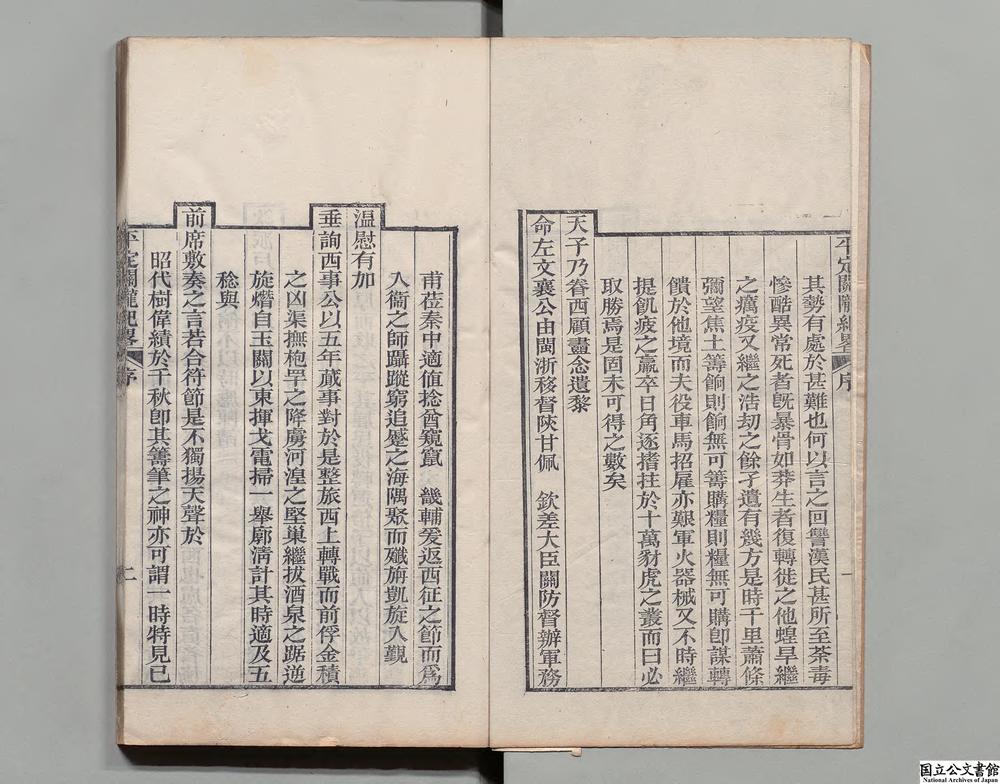 平定關隴紀畧 序 一
其勢有處於甚難也何以言之回讐漢民甚所至荼毒
慘酷異常死者旣暴骨如莽生者復轉徙之他蝗旱繼
之癘疫又繼之浩劫之餘孑遺有幾方是時千里蕭條
彌望焦土籌餉則餉無可籌購糧則糧無可購卽謀轉
饋於他境而夫役車馬招雇亦艱軍火器械又不時繼
提飢疲之羸卒日角逐撐拄於十萬豺虎之叢而曰必
取勝焉是固未可得之數矣
天子乃眷西顧畫念遺黎
命左文襄公由閩浙移督陝甘佩 欽差大臣關防督辦軍務
甫莅秦中適値捻酋窺竄 畿輔爰返西征之節而爲
入衞之師躡蹤窮追蹙之海隅聚而殲旃凱旋入覲
温慰有加
垂詢西事公以五年蕆事對於是整旅西上轉戰而前俘金積
之凶渠撫枹罕之降虜河湟之堅巢繼拔酒泉之踞逆
旋熸自玉關以東揮戈電掃一舉廓淸計其時適及五
稔與
前席敷奏之言若合符節是不獨揚天聲於
昭代樹偉績於千秋卽其籌筆之神亦可謂一時特見已
平定關隴紀畧 序 二
国立公文書館
National Archives of Japan